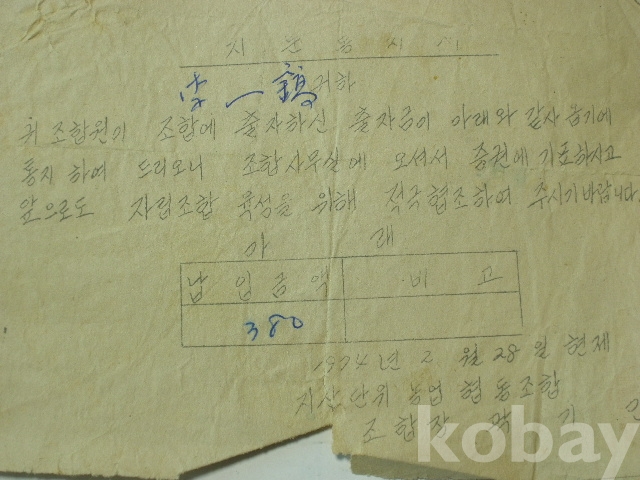 李一鶴 귀하
귀 조합원이 조합에 출자하신 출자금이 아래와 같사옵기에
통지 하여 드리오니 조합사무실에 오셔서 증권에 기표하시고
앞으로도 자립조합 육성을 위해 적극협조하여 주시기바랍니다.
아 래
납 입 금 액 비 고
380
1974 년 2 월 28 일 현재
지산단위 농업 협동조합
조합장 박 기
kobay